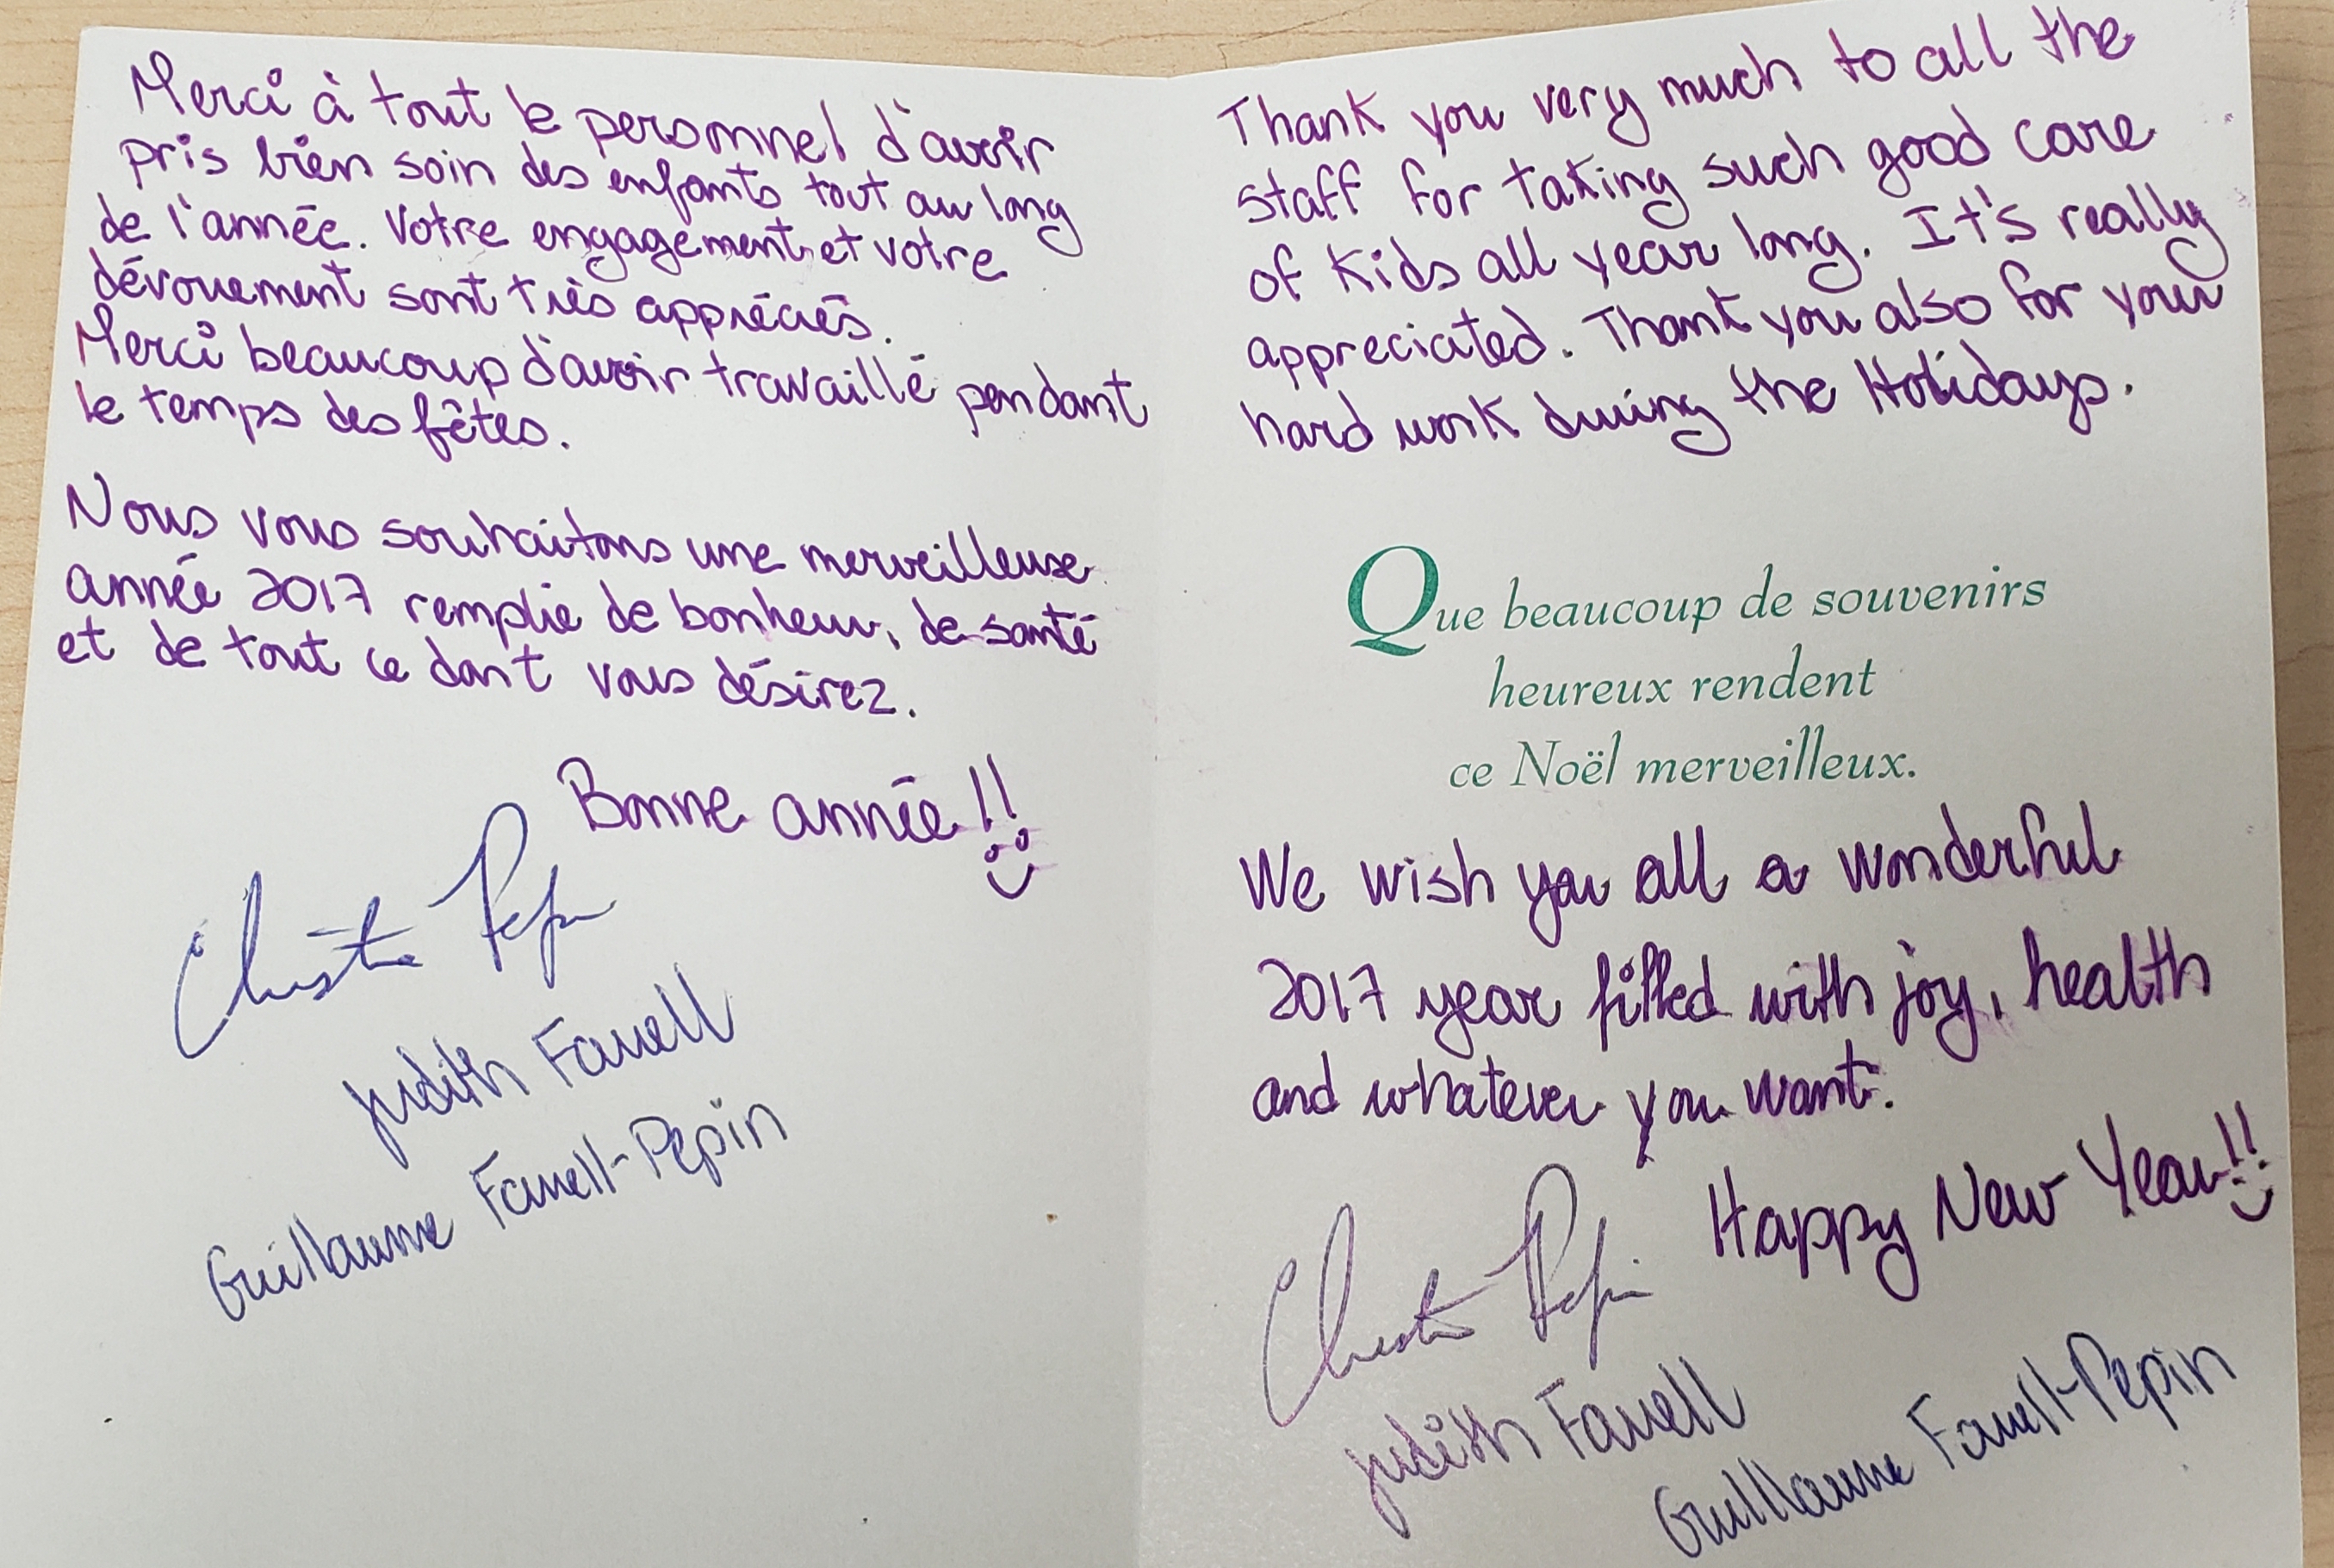 Merci à tout le personnel d'avoir
pris bien soin des enfants tout au long
de l'année. Votre engagement et votre
dévouement sont très appréciés.
Merci beaucoup d'avoir travaillé pendant
le temps des fêtes.
Nous vous souhaitons une merveilleuse
année 2017 remplie de bonheur, de santé
et de tout ce dont vous désirez.
Bonne année!!
Christian Pepin
Judith Farrell
Guillaume Farrell-Pepin
Thank you very much to all the
staff for taking such good care
of kids all year long. It's really
appreciated. Thank you also for your
hard work during the Holidays.
Que beaucoup de souvenirs
heureux rendent
ce Noël merveilleux.
We wish you all a wonderful
2017 year filled with joy, health
and whatever you want.
Happy New Year!!
Christian Pepin
Judith Farrell
Guillaume Farrell-Pepin